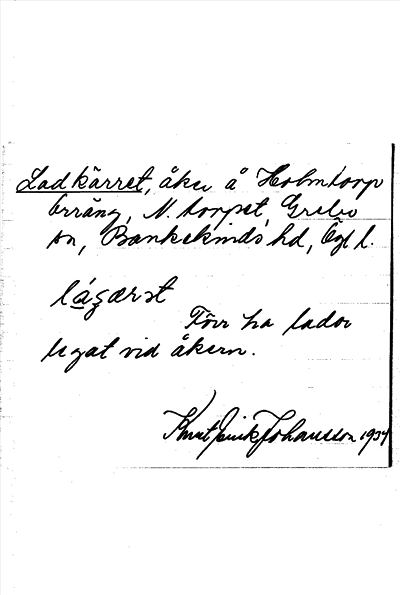 Ladkärret, åker å Holmtorp
N. torpet, Grebo
sn, Bankekinds hd, Ögl l.
Förr ha lador
legat vid åkern.
Knut Erik Johansson 1934